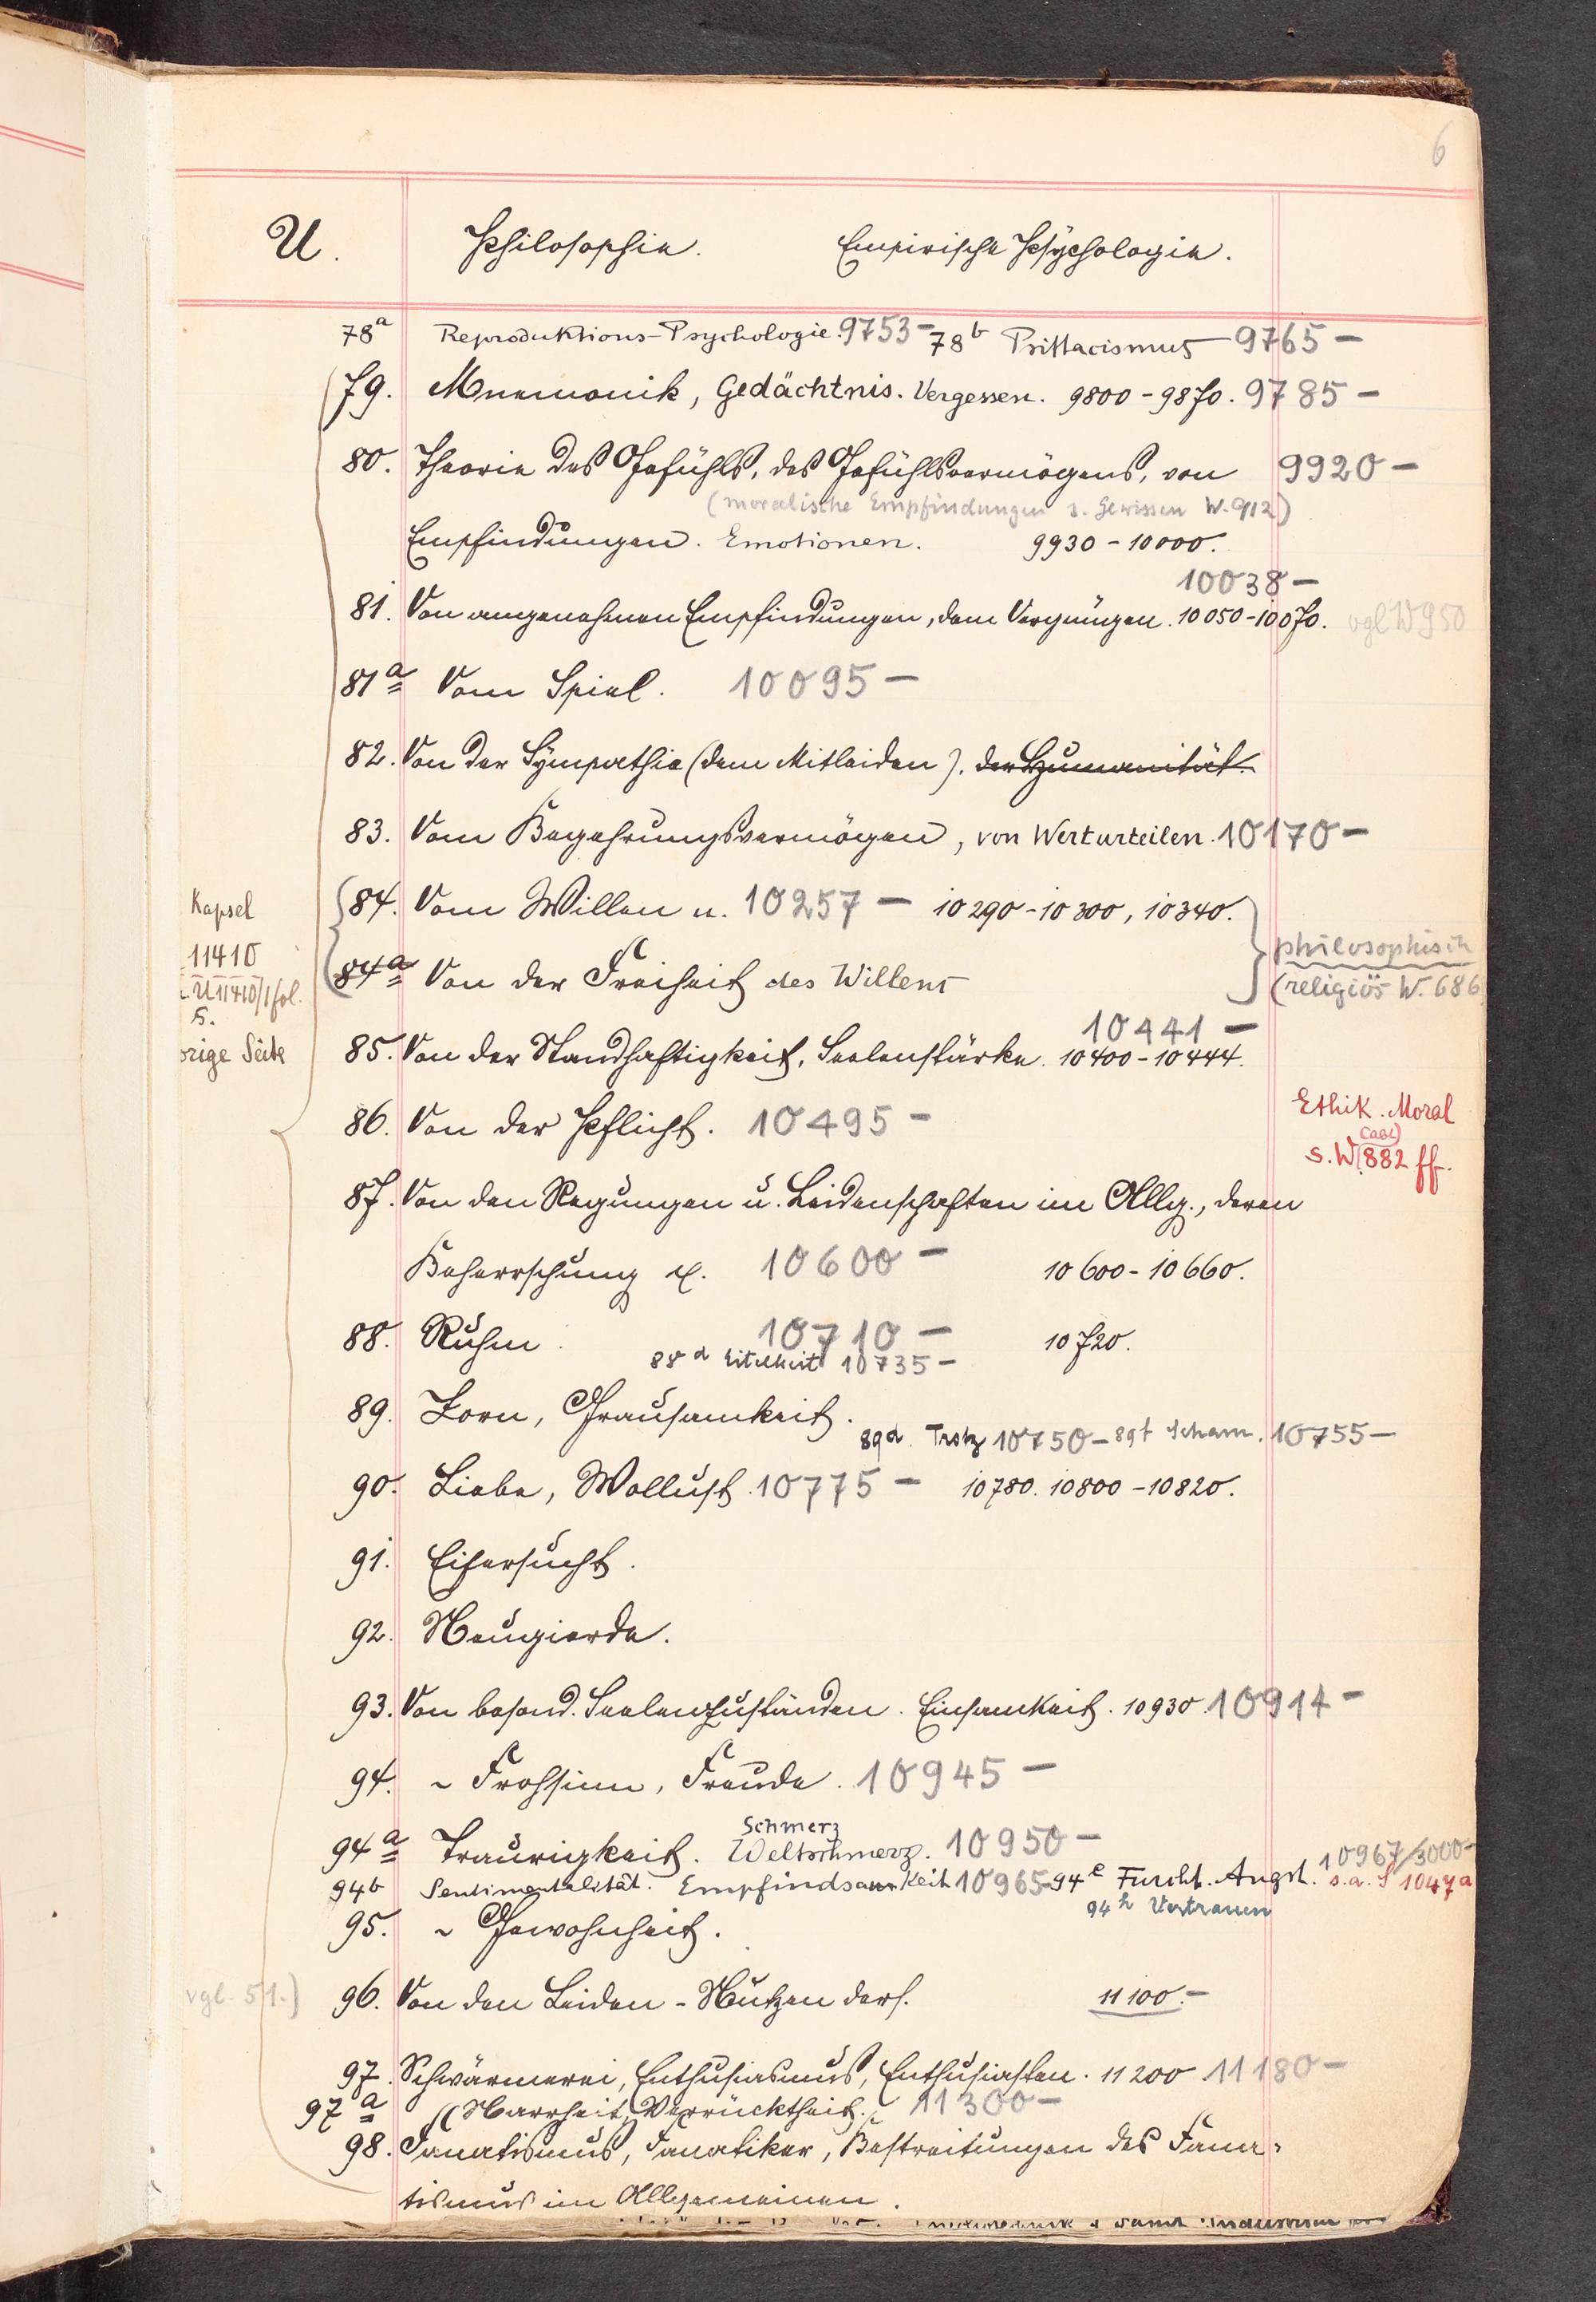 6
U. Philosophie. Empirische Psychologie.
78a Reproduktions-Psychologie. 9753- 78b Psittacismus 9765-
79. Mnemonik, Gedächtnis. Vergessen. 9800-9870. 9785-
80. Theorie des Gefühls, des Gefühlsvermögens, von 9920-
(moralische Empfindungen s. Gewissen W. 912)
Empfindungen. Emotionen. 9930-10000.
10038-
81. Von angenehmen Empfindungen, dem Vergnügen. 10050-10070. vgl W950
81a Vom Spiel. 10095-
82. Von der Sympathie (dem Mitleiden). der Humanität.
83. Vom Begehrungsvermögen, von Werturteilen. 10170-
84. Vom Willen u. 10257- 10290-10300, 10340.
Kapsel
11410
U11410/1 fol.
s.
orige Seite
84a Von der Freiheit des Willens
philosophisch
(religiös W. 686
10441-
85. Von der Standhaftigkeit, Seelenstärke. 10400-10444.
86. Von der Pflicht. 10495-
Ethik. Moral
s. W 882 ff.
87. Von den Regungen u. Leidenschaften im Allg., deren
Beherrschung 10600- 10600-10660.
88. Ruhm. 10710- 10720.
88d Eitelkeit 10735-
89. Zorn, Grausamkeit.
89d. Trotz 10750- 89f Scham. 10755-
90. Liebe, Wollust. 10775- 10780. 10800-10820.
91. Eifersucht.
92. Neugierde.
93. Von besond. Seelenzuständen. Einsamkeit. 10930. 10914-
94. ~ Frohsinn, Freude. 10945-
Schmerz
94a Traurigkeit. Weltschmerz. 10950-
10967/3000-
94b Sentimentalität. Empfindsamkeit 10965- 94e Furcht. Angst. s.a. S 1047a
94h Vertrauen
95. ~ Gewohnheit.
vgl. 51.) 96. Von den Leiden - Nutzen ders. 11100.-
97. Schwärmerei, Enthusiasmus, Enthusiasten. 11200 11180-
97a (Narrheit, Verrücktheit. 11300-
98. Fanatismus, Fanatiker, Bestreitungen des Fana-
tismus im Allgemeinen.